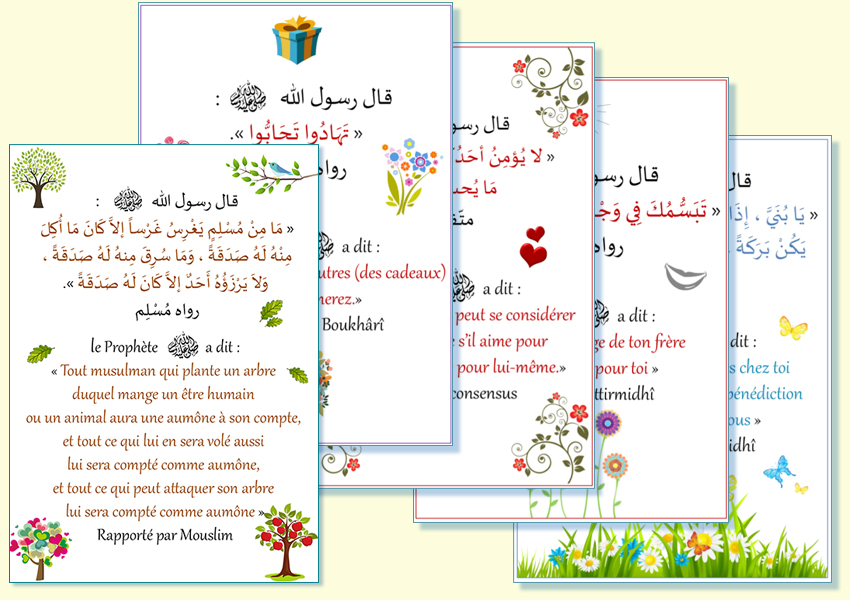 قال رسول الله ﷺ :
« مَا مِنْ مُسْلِمٍ يَغْرِسُ غَرْساً إلاَّ كَانَ مَا أُكِلَ
مِنْهُ لَهُ صَدَقَةً ، وَمَا سُرِقَ مِنهُ لَهُ صَدَقَةً ،
وَلاَ يَرْزَؤُهُ أَحَدٌ إلاَّ كَانَ لَهُ صَدَقَةً ».
رواه مُسْلِم
le Prophète ﷺ a dit :
« Tout musulman qui plante un arbre
duquel mange un être humain
ou un animal aura une aumône à son compte,
et tout ce qui lui en sera volé aussi
lui sera compté comme aumône,
et tout ce qui peut attaquer son arbre
lui sera compté comme aumône »
Rapporté par Mouslim
قال رسول الله ﷺ :
« تَهَادُوا تَحَابُّوا ».
رواه
ﷺ a dit :
utres (des cadeaux)
merez.»
Boukhârî
قال رسو
« لا يُؤمِنُ أحَدُ
مَا يُحِ
متّف
ﷺ a dit :
peut se considérer
e s’il aime pour
pour lui-même.»
consensus
قال رس
« تَبَسُّمُكَ فِي وَجْ
رواه
a dit :
ge de ton frère
pour toi »
ttirmidhî
قال
« يَا بُنَيَّ ، إِذَا
يَكُنْ بَرَكَةً
dit :
s chez toi
bénédiction
ous »
idhî